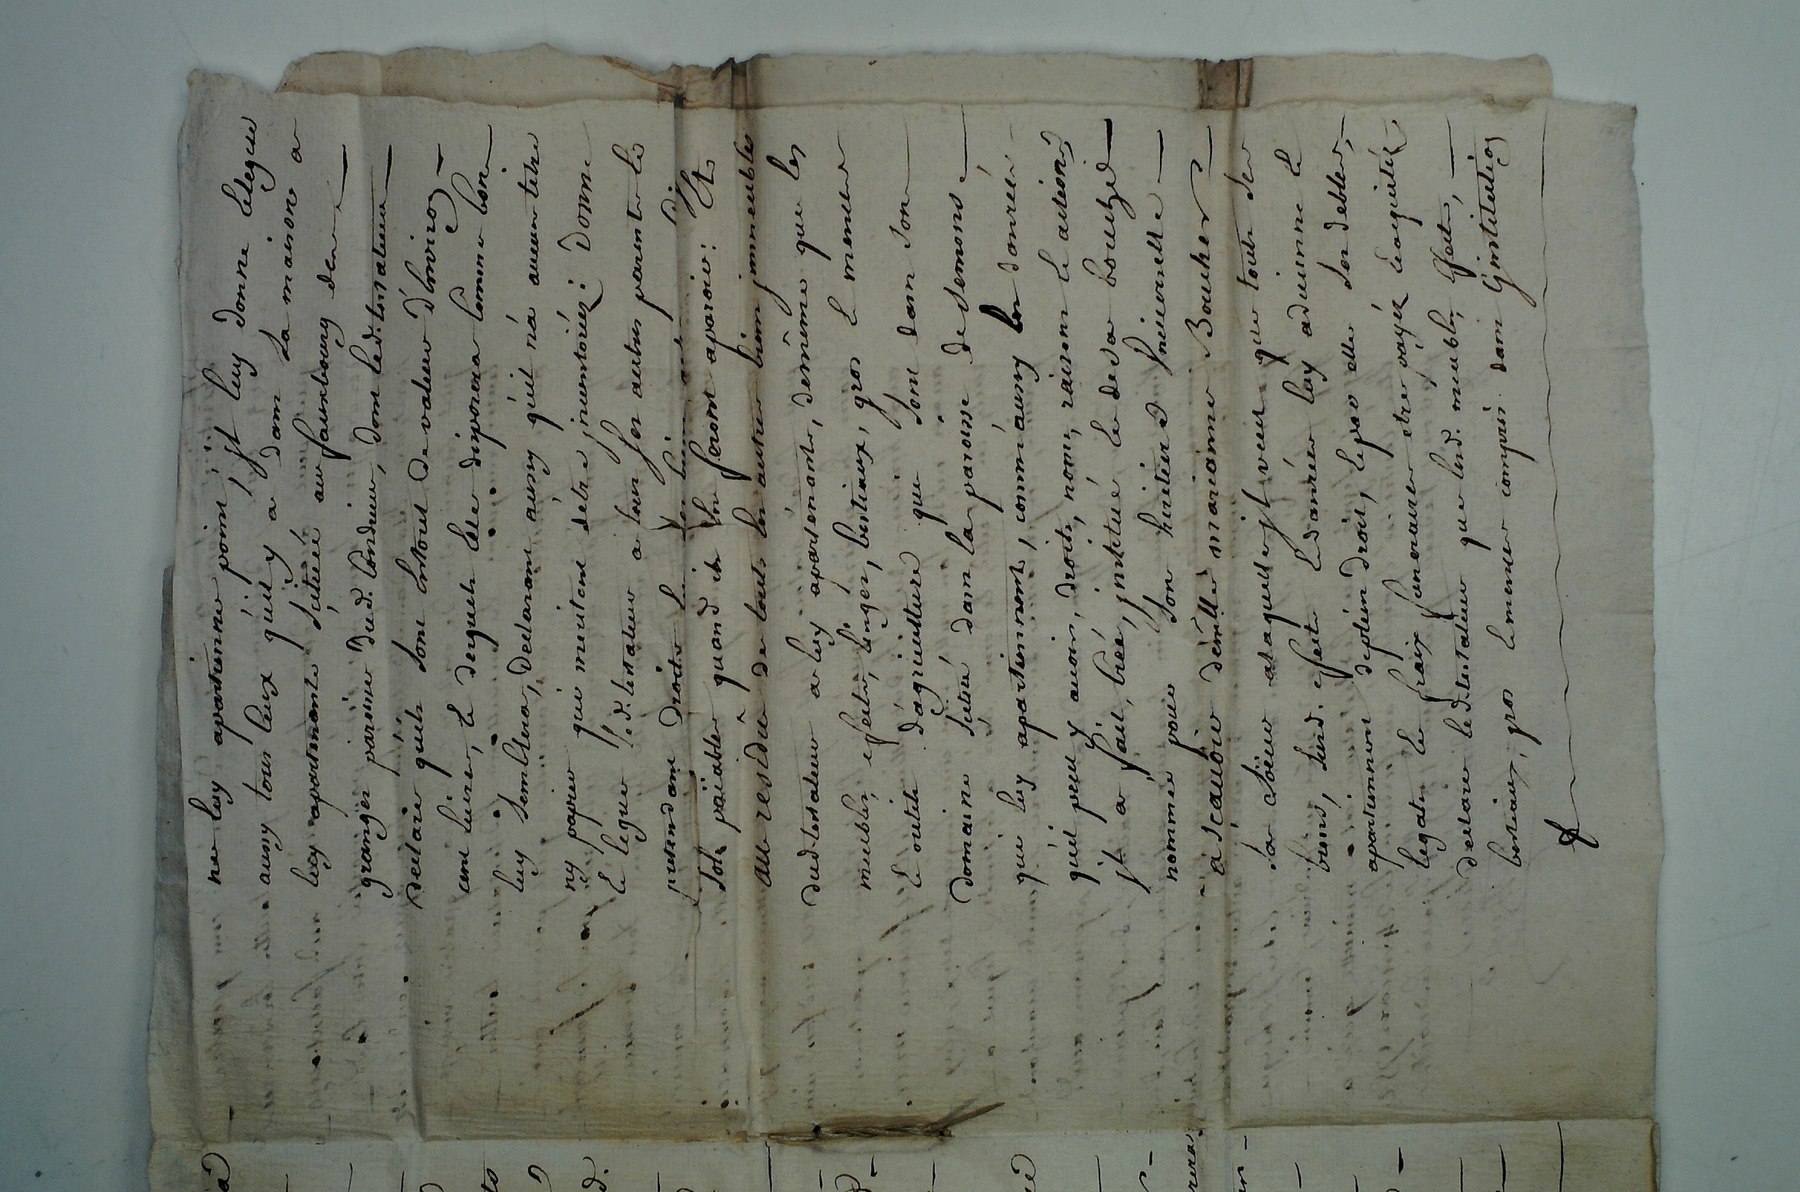 ne luy apartenir point, Et luy donne et legue
aussy tous ceux qu'il y a dans sa maison a
luy apartenante située au fauxbourg des
granges paroisse dud. Condrieu, dont led. testateur
declare qu'ils sont en tout de valeur d'environ
cent livres, et desquels elle disposera comme bon
luy semblera, declarant aussy qu'il n'a aucun titre
ny papier qui meritent d'etre inventoriéz : Donne
et legue led. testateur a tous ses autres parents
pretendant droits sur ses biens cinq
sols païables quand ils en feront aparoir : Et
au residû de touts les autres biens immeubles
dud. testateur a luy apartenants, de même que les
meubles, effets, linges, bestiaux, gros et menus
et outils d'agriculture qui sont dans son
domaine situé dans la paroisse de Semons
qui luy apartiennent, comm'aussy les danrées
qu'il peut y avoir, droits, noms, raisons et actions
Il a fait, créé, institué et de sa bouche
nommé pour son heritiere universelle
a sçavoir demlle marianne Boucher
sa sœur a laquelle il veut que touts ses
biens, susd. effets et danrées luy adviennent et
apartiennent de plein droit, et par elle ses debtes,
legats et fraix funeraires etre payéz et acquitéz
declare led. testateur que lesd. meubles, effets,
bestiaux, gros et menus compris dans l'institution